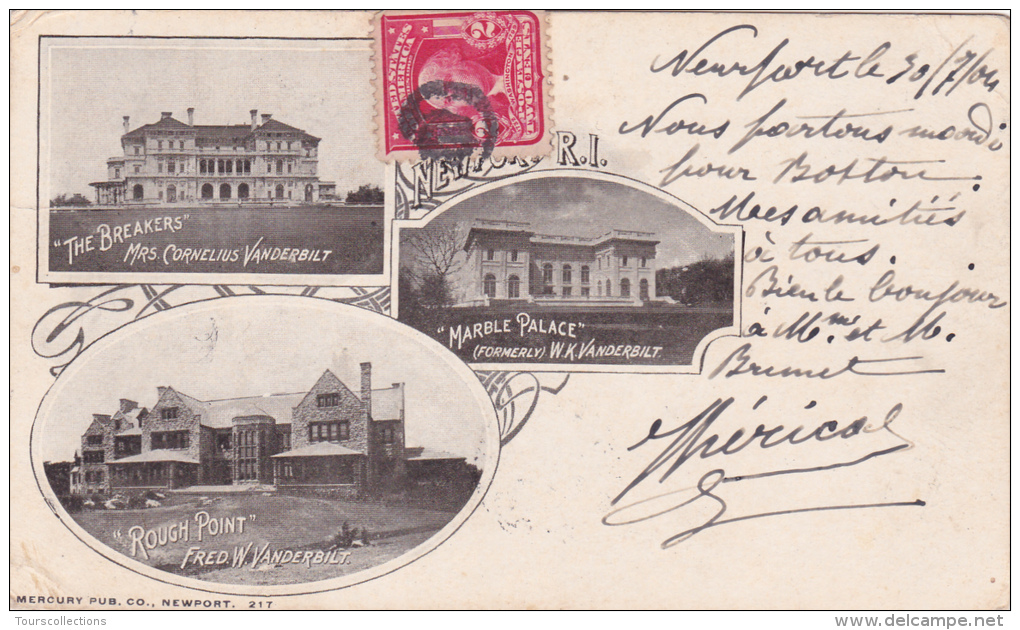 Newport le 30/7/04
Nous partons mardi
pour Boston.
Mes amitiés
à tous.
Bien le bonjour
à Mme et M.
Brunet
NEWPORT R.I.
UNITED STATES
OF AMERICA
2
"THE BREAKERS"
MRS. CORNELIUS VANDERBILT
"MARBLE PALACE"
(FORMERLY) W.K. VANDERBILT.
"ROUGH POINT"
FRED. W. VANDERBILT.
MERCURY PUB. CO., NEWPORT. 217
Tourscollections
delcampe.net